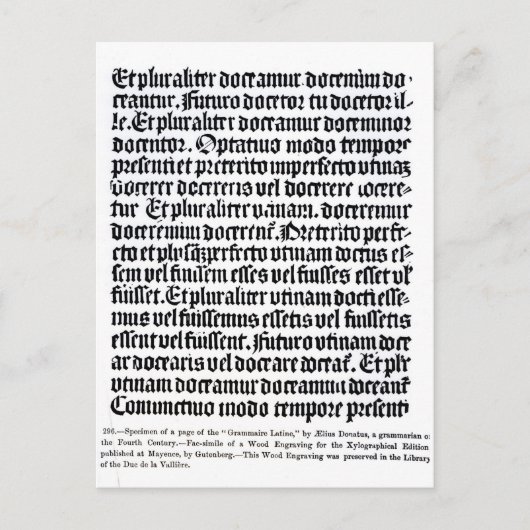 Et pluraliter doceamur docemini do-
ceantur. Futuro docetor tu docetor il-
le. Et pluraliter doceamur doceminor
docentor. Optatiuo modo tempore
presenti et preterito imperfecto vtinaz
docerer docereris vel docerere docere-
tur Et pluraliter vtinam. doceremur
doceremini docerent. Preterito perfe-
cto et plusqzperfecto vtinam doctus es-
sem vel fuissem esses vel fuisses esset vl
fuisset. Et pluraliter vtinam docti esse-
mus vel fuissemus essetis vel fuissetis
essent vel fuissent. Futuro vtinam doce
ar docearis vel doceare doceat. Et plr
vtinam doceamur doceamini doceant
Coniunctiuo modo tempore presenti
296.—Specimen of a page of the "Grammaire Latine," by Ælius Donatus, a grammarian of
the Fourth Century.—Fac-simile of a Wood Engraving for the Xylographical Edition
published at Mayence, by Gutenberg.—This Wood Engraving was preserved in the Library
of the Duc de la Vallière.